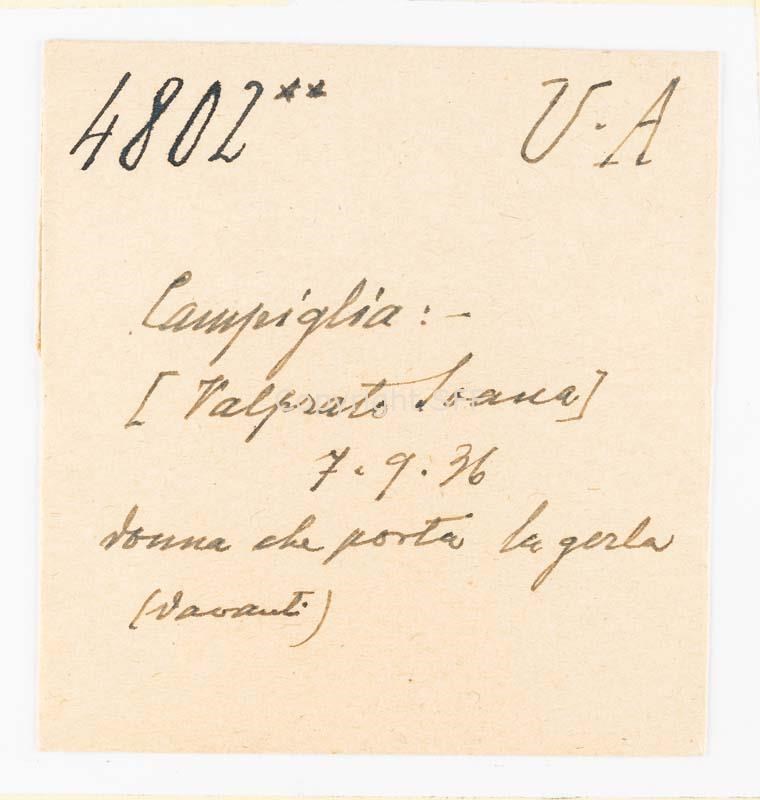 4802** V.A
Campiglia:-
[Valprato Soana]
7.9.36
donna che porta la gerla
(davanti)